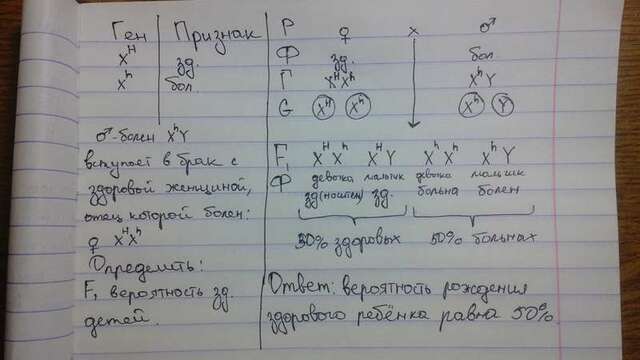 Ген Признак
X^H зд.
X^h бол.
♂-болен X^hY
вступает в брак с
здоровой женщиной,
отец которой болен:
♀ X^HX^h
Определить:
F₁ вероятность зд.
детей.
P ♀ x ♂
Ф зд. бол
Г X^HX^h X^hY
G X^H X^h X^h Y
F₁ X^HX^h X^HY X^hX^h X^hY
Ф девочка мальчик девочка мальчик
зд(носител) зд. больна болен
50% здоровых 50% больных
Ответ: вероятность рождения
здорового ребёнка равна 50%.